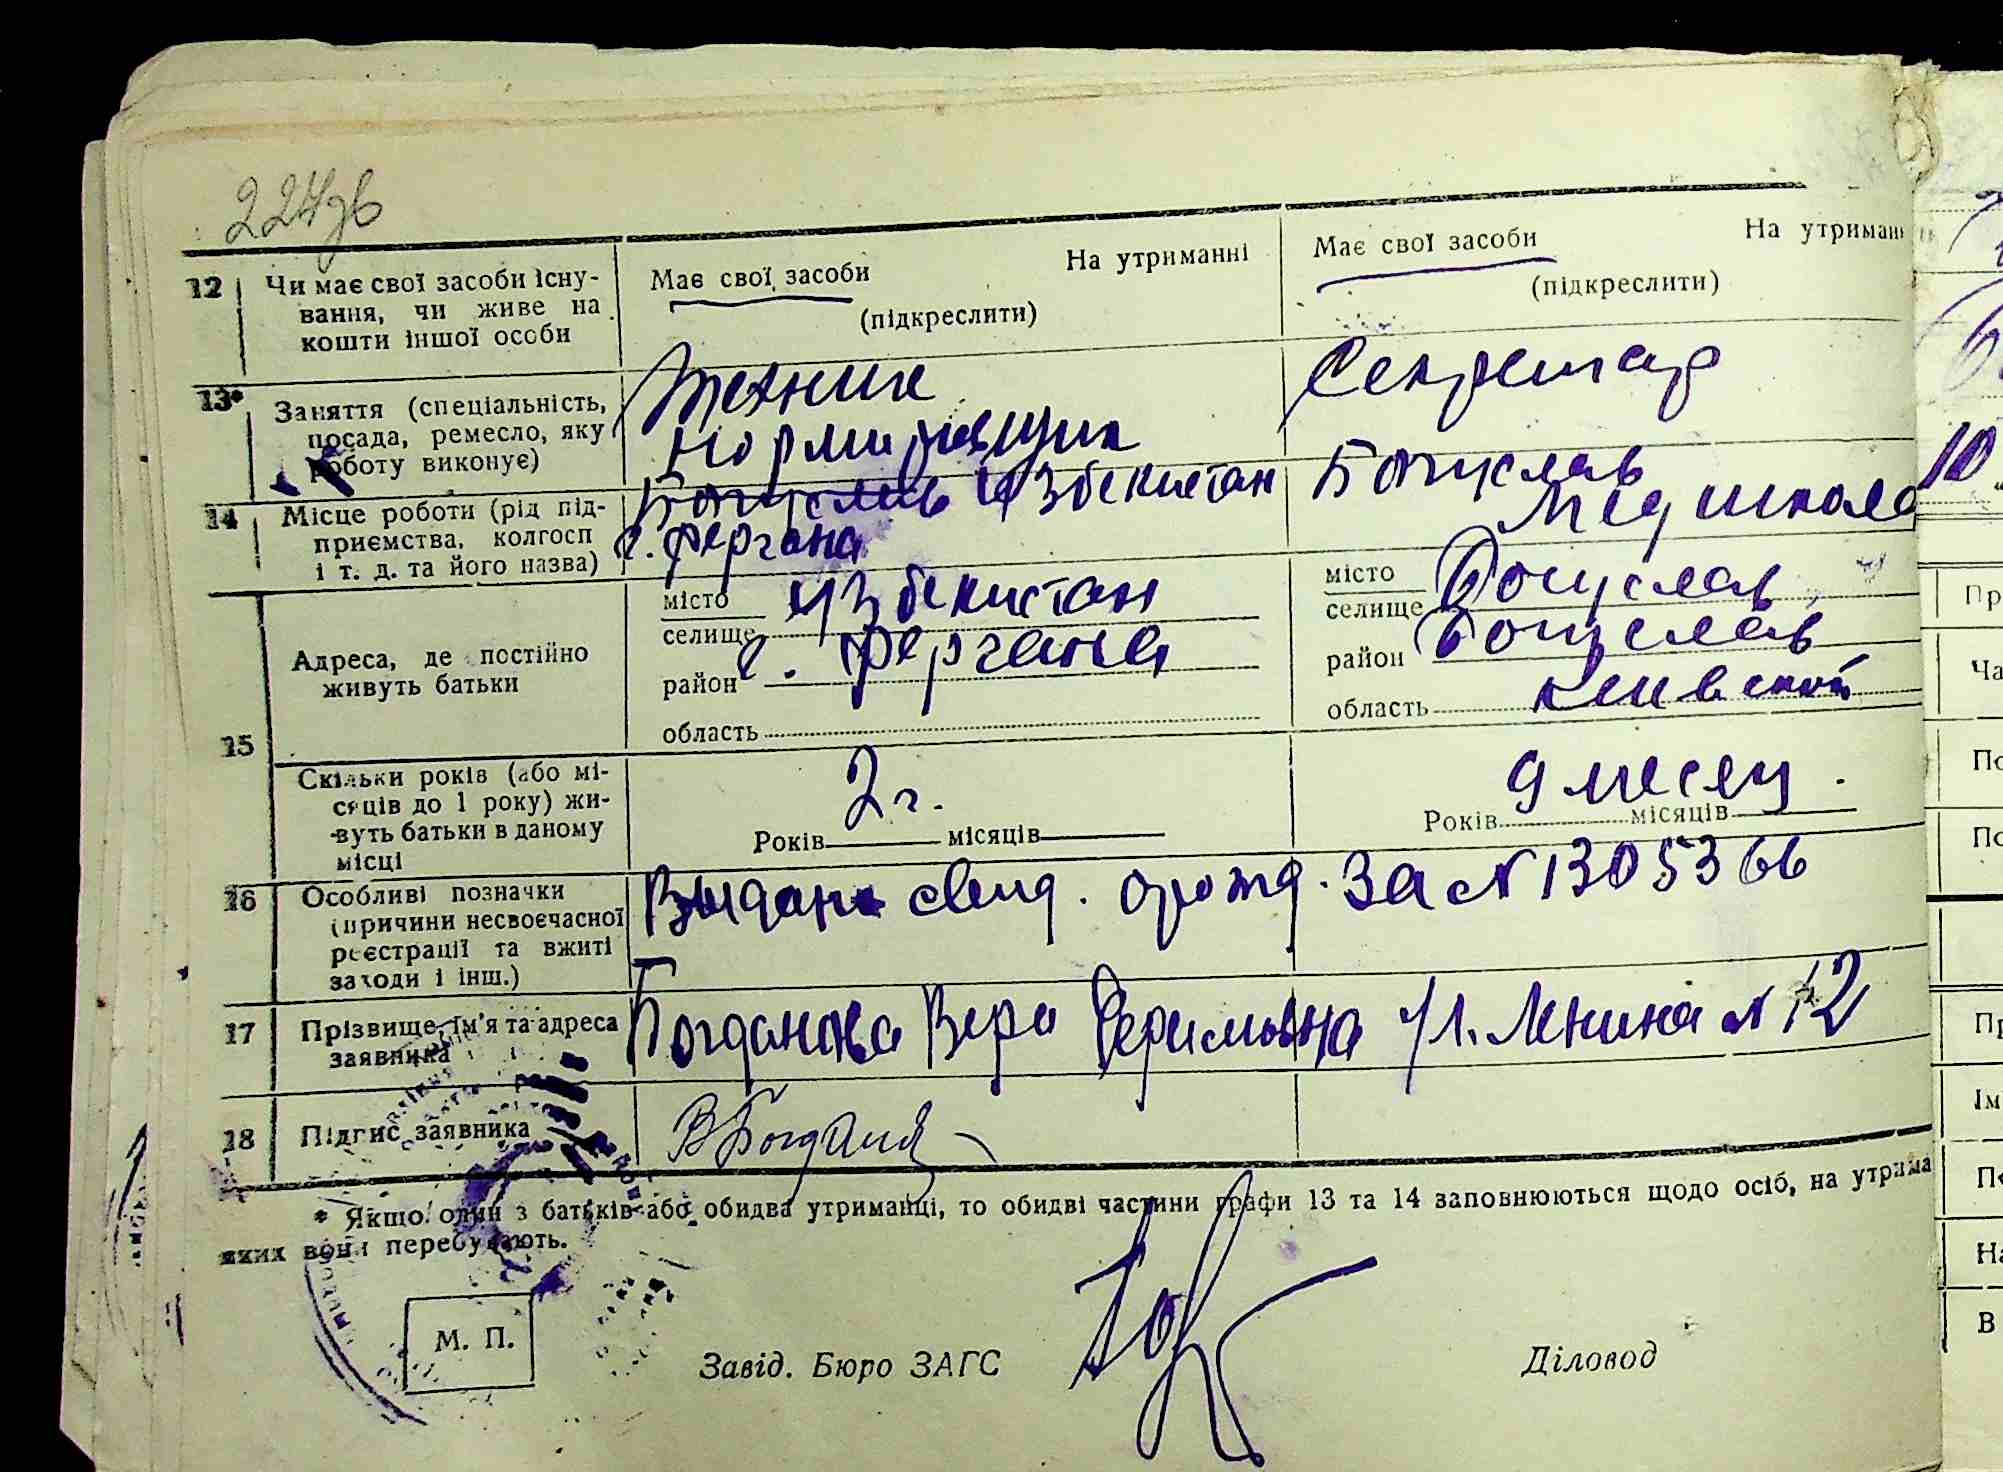 227зв
12 Чи має свої засоби існу-
вання, чи живе на
кошти іншої особи
Має свої засоби На утриманні
(підкреслити)
Має свої засоби На утриман
(підкреслити)
13* Заняття (спеціальність,
посада, ремесло, яку
роботу виконує)
Техник
нормировщик
Секретар
14 Місце роботи (рід під-
приємства, колгосп
і т. д. та його назва)
Богуслав Узбекистан
г. Фергана
Богуслав
Медшкола
15 Адреса, де постійно
живуть батьки
місто
селище
Узбекистан
район г. Фергана
область
місто
селище
Богуслав
район Богуслав
область Киевской
Скільки років (або мі-
сяців до 1 року) жи-
вуть батьки в даному
місці
2 г.
Років місяців
9 месяц.
Років місяців
16 Особливі позначки
(причини несвоєчасної
реєстрації та вжиті
заходи і інш.)
Выдан свид. орожд. за № 1305366
17 Прізвище, ім'я та адреса
заявника
Богданова Вера Ефимовна ул. Ленина № 12
18 Підпис заявника
* Якщо один з батьків або обидва утриманці, то обидві частини графи 13 та 14 заповнюються щодо осіб, на утрима
яких вони перебувають.
М. П.
Завід. Бюро ЗАГС
Діловод
10
Пр
Ча
По
По
Пр
Ім
По
На
В